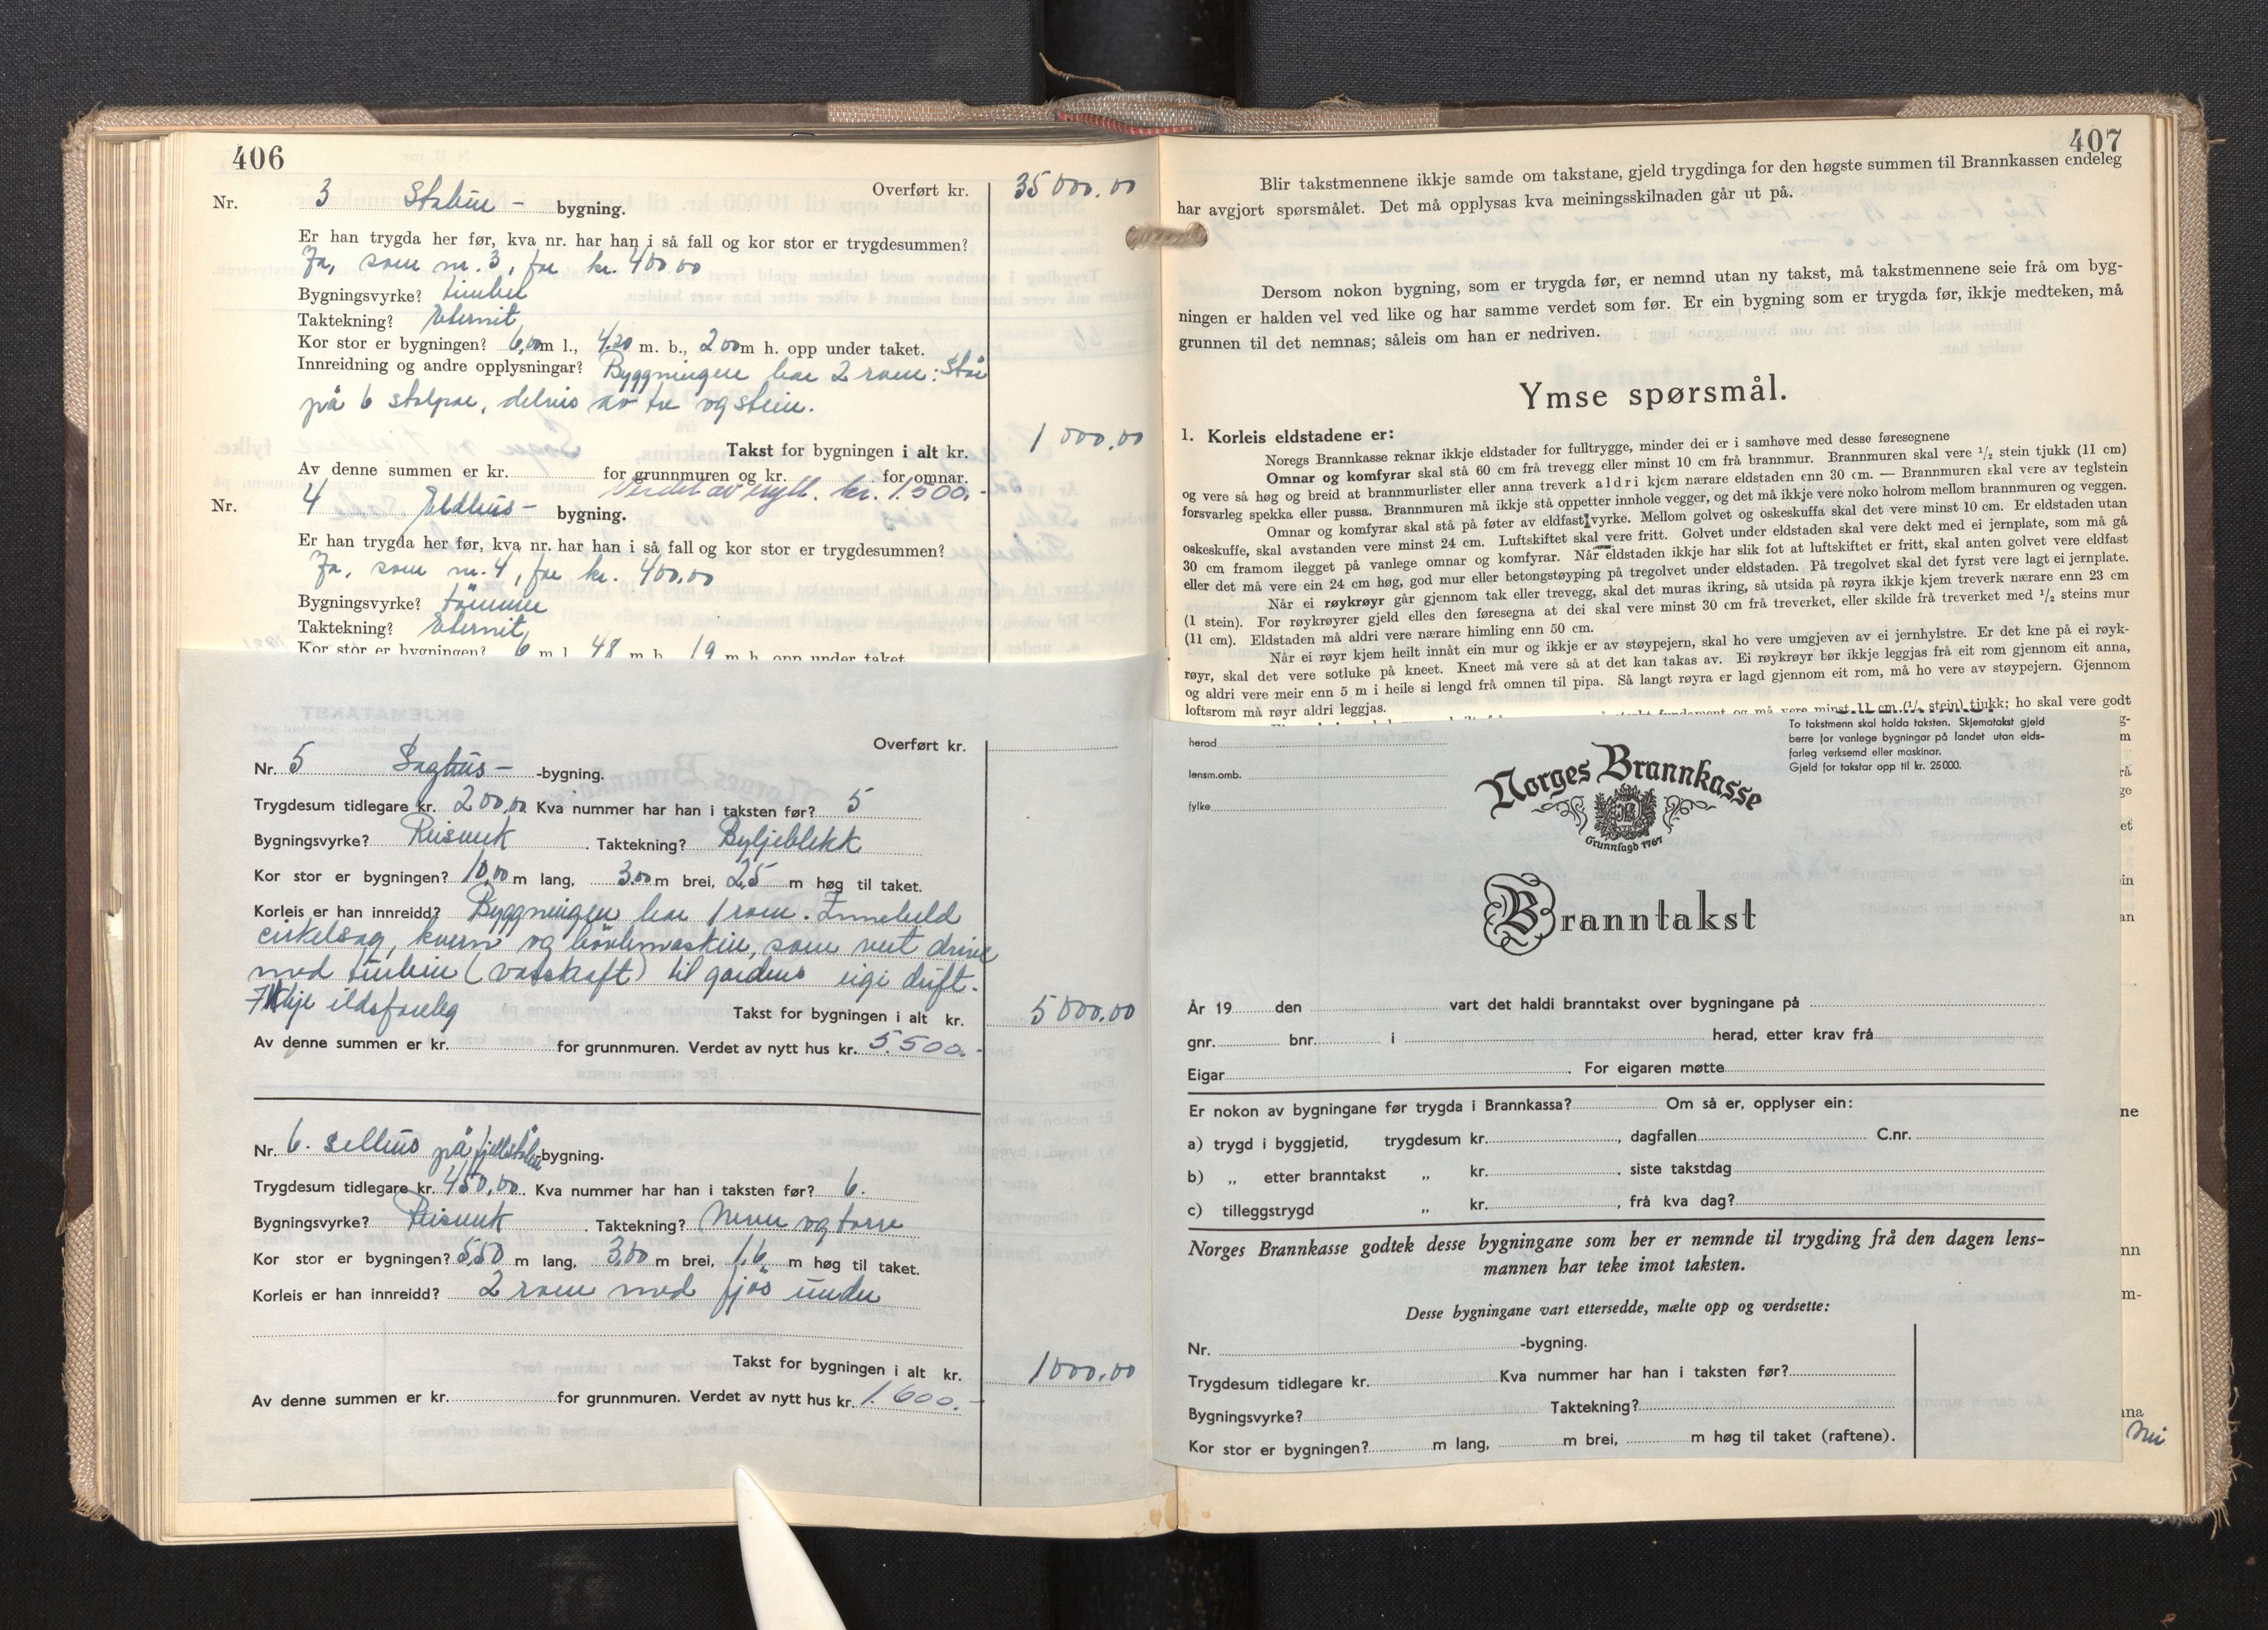 406
Overført kr. 35 000.00
Nr. 3 Stabur - bygning.
Er han trygda her før, kva nr. har han i så fall og kor stor er trygdesummen?
Ja, som nr. 3, for kr. 400.00
Bygningsvyrke? timber
Taktekning? Eternit
Kor stor er bygningen? 6,00 m l., 4.20 m. b., 2.00 m h. opp under taket.
Innreidning og andre opplysningar? Byggningen har 2 rom: Står
på 6 stolpar, delvis av tre og stein.
Takst for bygningen i alt kr. 1 000.00
Av denne summen er kr. for grunnmuren og kr. for omnar.
Verdet av nytt. kr. 1.500.-
Nr. 4 Eldhus - bygning.
Er han trygda her før, kva nr. har han i så fall og kor stor er trygdesummen?
Ja, som nr. 4, for kr. 400,00
Bygningsvyrke? tømmer
Taktekning? Eternit,
Kor stor er bygningen? 6 m l. 48 m b. 19 m h. opp under taket.
Overført kr.
Nr. 5 Saghus - -bygning.
Trygdesum tidlegare kr. 200,00. Kva nummer har han i taksten før? 5
Bygningsvyrke? Reisverk Taktekning? Bylgjeblekk
Kor stor er bygningen? 10,00 m lang, 3.00 m brei, 2,5 m høg til taket.
Korleis er han innreidd? Byggningen har 1 rom. Inneheld
cirkelsag, kvern og høvlemaskin, som vert drive
med turbin (vasskraft) til gardens eige drift.
Ikkje ildsfarleg
Takst for bygningen i alt kr. 5 000.00
Av denne summen er kr. for grunnmuren. Verdet av nytt hus kr. 5.500.-
Nr. 6. Selhus på fjellstølen -bygning.
Trygdesum tidlegare kr. 450,00. Kva nummer har han i taksten før? 6.
Bygningsvyrke? Reisverk Taktekning? Never og torv
Kor stor er bygningen? 5,50 m lang, 3,00 m brei, 1,6 m høg til taket.
Korleis er han innreidd? 2 rom med fjøs under
Takst for bygningen i alt kr. 1000.00
Av denne summen er kr. for grunnmuren. Verdet av nytt hus kr. 1.600.-
407
Blir takstmennene ikkje samde om takstane, gjeld trygdinga for den høgste summen til Brannkassen endeleg
har avgjort spørsmålet. Det må opplysas kva meiningsskilnaden går ut på.
Dersom nokon bygning, som er trygda før, er nemnd utan ny takst, må takstmennene seie frå om byg-
ningen er halden vel ved like og har samme verdet som før. Er ein bygning som er trygda før, ikkje medteken, må
grunnen til det nemnas; såleis om han er nedriven.
Ymse spørsmål.
1. Korleis eldstadene er:
Noregs Brannkasse reknar ikkje eldstader for fulltrygge, minder dei er i samhøve med desse føresegnene
Omnar og komfyrar skal stå 60 cm frå trevegg eller minst 10 cm frå brannmur. Brannmuren skal vere 1/2 stein tjukk (11 cm)
og vere så høg og breid at brannmurlister eller anna treverk aldri kjem nærare eldstaden enn 30 cm. — Brannmuren skal vere av teglstein
forsvarleg spekka eller pussa. Brannmuren må ikkje stå oppetter innhole vegger, og det må ikkje vere noko holrom mellom brannmuren og veggen.
Omnar og komfyrar skal stå på føter av eldfast vyrke. Mellom golvet og oskeskuffa skal det vere minst 10 cm. Er eldstaden utan
oskeskuffe, skal avstanden vere minst 24 cm. Luftskiftet skal vere fritt. Golvet under eldstaden skal vere dekt med ei jernplate, som må gå
30 cm framom ilegget på vanlege omnar og komfyrar. Når eldstaden ikkje har slik fot at luftskiftet er fritt, skal anten golvet vere eldfast
eller det må vere ein 24 cm høg, god mur eller betongstøyping på tregolvet under eldstaden. På tregolvet skal det fyrst vere lagt ei jernplate.
Når ei røykrøyr går gjennom tak eller trevegg, skal det muras ikring, så utsida på røyra ikkje kjem treverk nærare enn 23 cm
(1 stein). For røykrøyrer gjeld elles den føresegna at dei skal vere minst 30 cm frå treverket, eller skilde frå treverket med 1/2 steins mur
(11 cm). Eldstaden må aldri vere nærare himling enn 50 cm.
Når ei røyr kjem heilt innåt ein mur og ikkje er av støypejern, skal ho vere umgjeven av ei jernhylstre. Er det kne på ei røyk-
røyr, skal det vere sotluke på kneet. Kneet må vere så at det kan takas av. Ei røykrøyr bør ikkje leggjas frå eit rom gjennom eit anna,
og aldri vere meir enn 5 m i heile si lengd frå omnen til pipa. Så langt røyra er lagd gjennom eit rom, må ho vere av støypejern. Gjennom
loftsrom må røyr aldri leggjas.
fundament og må vere minst 11 cm (1/2 stein) tjukk; ho skal vere godt
herad
lensm.omb.
fylke
Norges Brannkasse
Grunnlagd 1767
To takstmenn skal halda taksten. Skjematakst gjeld
berre for vanlege bygningar på landet utan elds-
farleg verksemd eller maskinar.
Gjeld for takstar opp til kr. 25000.
Branntakst
År 19 den vart det haldi branntakst over bygningane på
gnr. bnr. i herad, etter krav frå
Eigar. For eigaren møtte
Er nokon av bygningane før trygda i Brannkassa? Om så er, opplyser ein:
a) trygd i byggjetid, trygdesum kr. , dagfallen C.nr.
b) „ etter branntakst „ kr. , siste takstdag
c) tilleggstrygd „ kr. , frå kva dag?
Norges Brannkasse godtek desse bygningane som her er nemnde til trygding frå den dagen lens-
mannen har teke imot taksten.
Desse bygningane vart ettersedde, mælte opp og verdsette:
Nr. -bygning.
Trygdesum tidlegare kr. Kva nummer har han i taksten før?
Bygningsvyrke? Taktekning?
Kor stor er bygningen? m lang, m brei, m høg til taket (raftene).